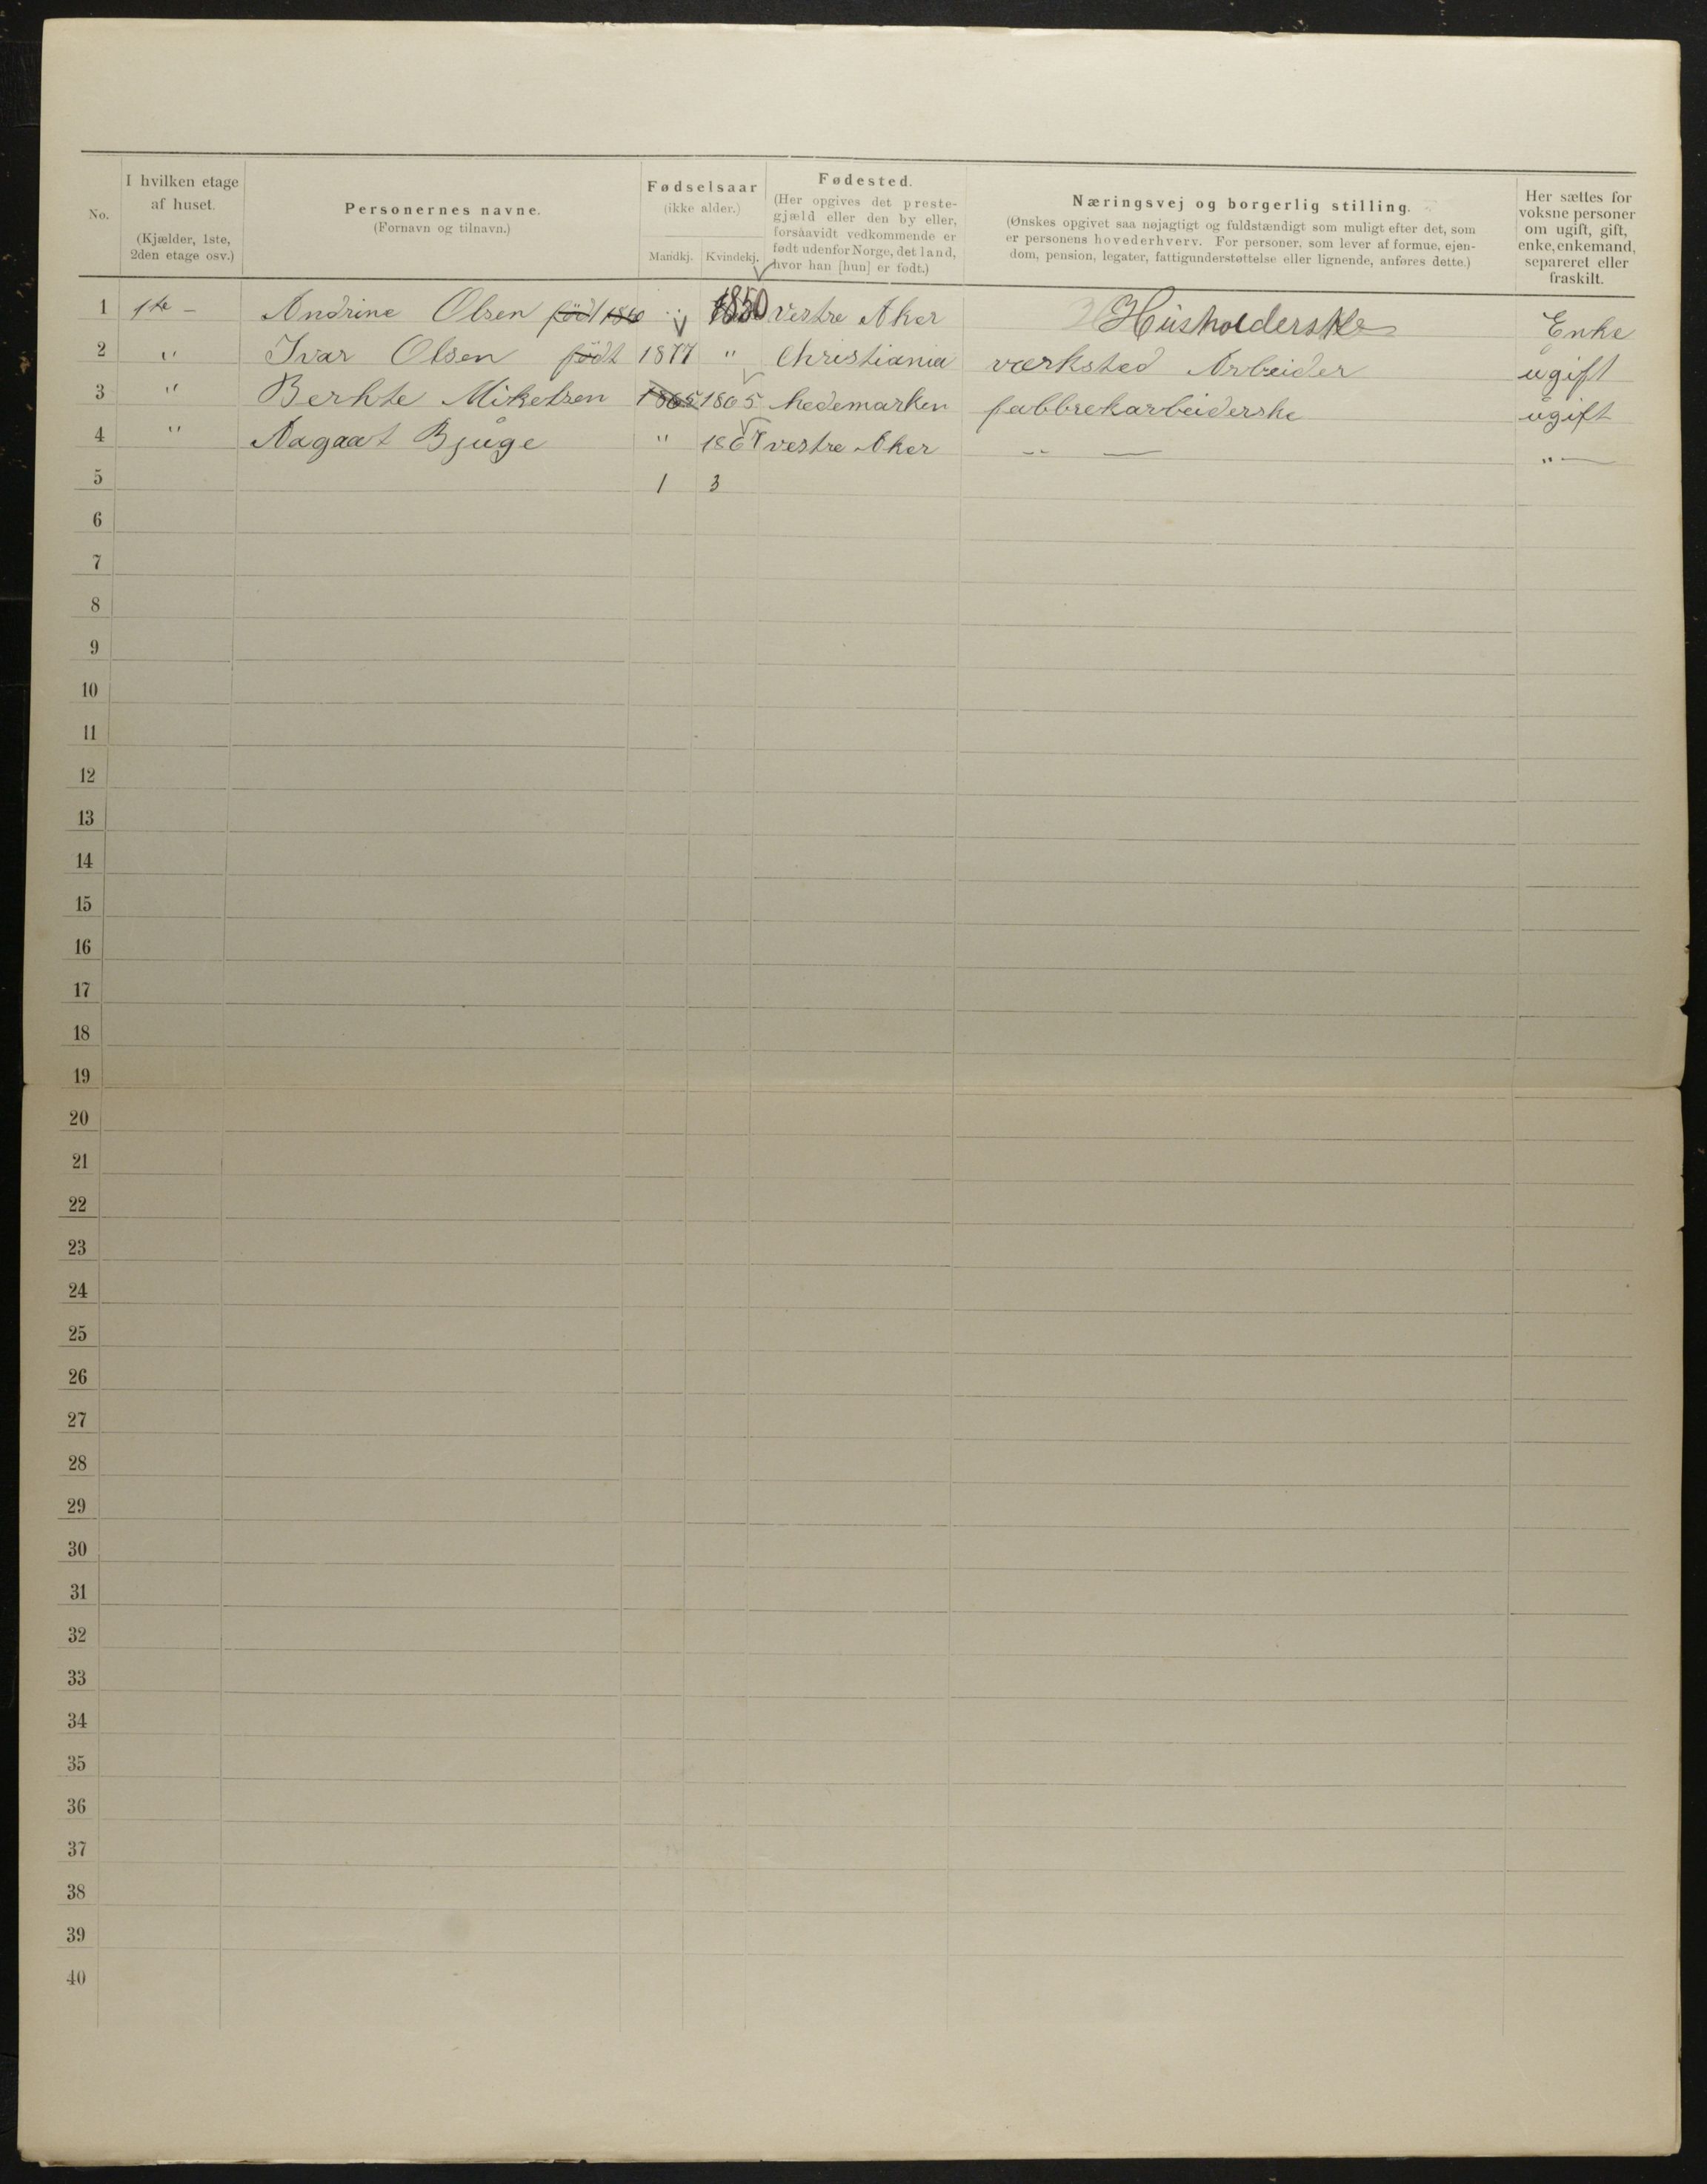 No. | I hvilken etage af huset. (Kjælder, 1ste, 2den etage osv.) | Personernes navne. (Fornavn og tilnavn.) | Fødselsaar (ikke alder.) Mandkj. Kvindekj. | Fødested. (Her opgives det prestegjæld eller den by eller, forsaavidt vedkommende er født udenfor Norge, det land, hvor han [hun] er født.) | Næringsvej og borgerlig stilling. (Ønskes opgivet saa nøjagtigt og fuldstændigt som muligt efter det, som er personens hovederhverv. For personer, som lever af formue, ejendom, pension, legater, fattigunderstøttelse eller lignende, anføres dette.) | Her sættes for voksne personer om ugift, gift, enke, enkemand, separeret eller fraskilt.
1 1ste – Andrine Olsen født 1850 " 1850 Vestre Aker Husholderske Enke
2 " Ivar Olsen født 1877 " Christiania værksted Arbeider ugift
3 " Berhte Mikelsen 1865 1865 hedemarken fabbrekarbeiderske ugift
4 " Aagaat Bjuge " 1867 vestre Aker " — " —
5 1 3
6
7
8
9
10
11
12
13
14
15
16
17
18
19
20
21
22
23
24
25
26
27
28
29
30
31
32
33
34
35
36
37
38
39
40